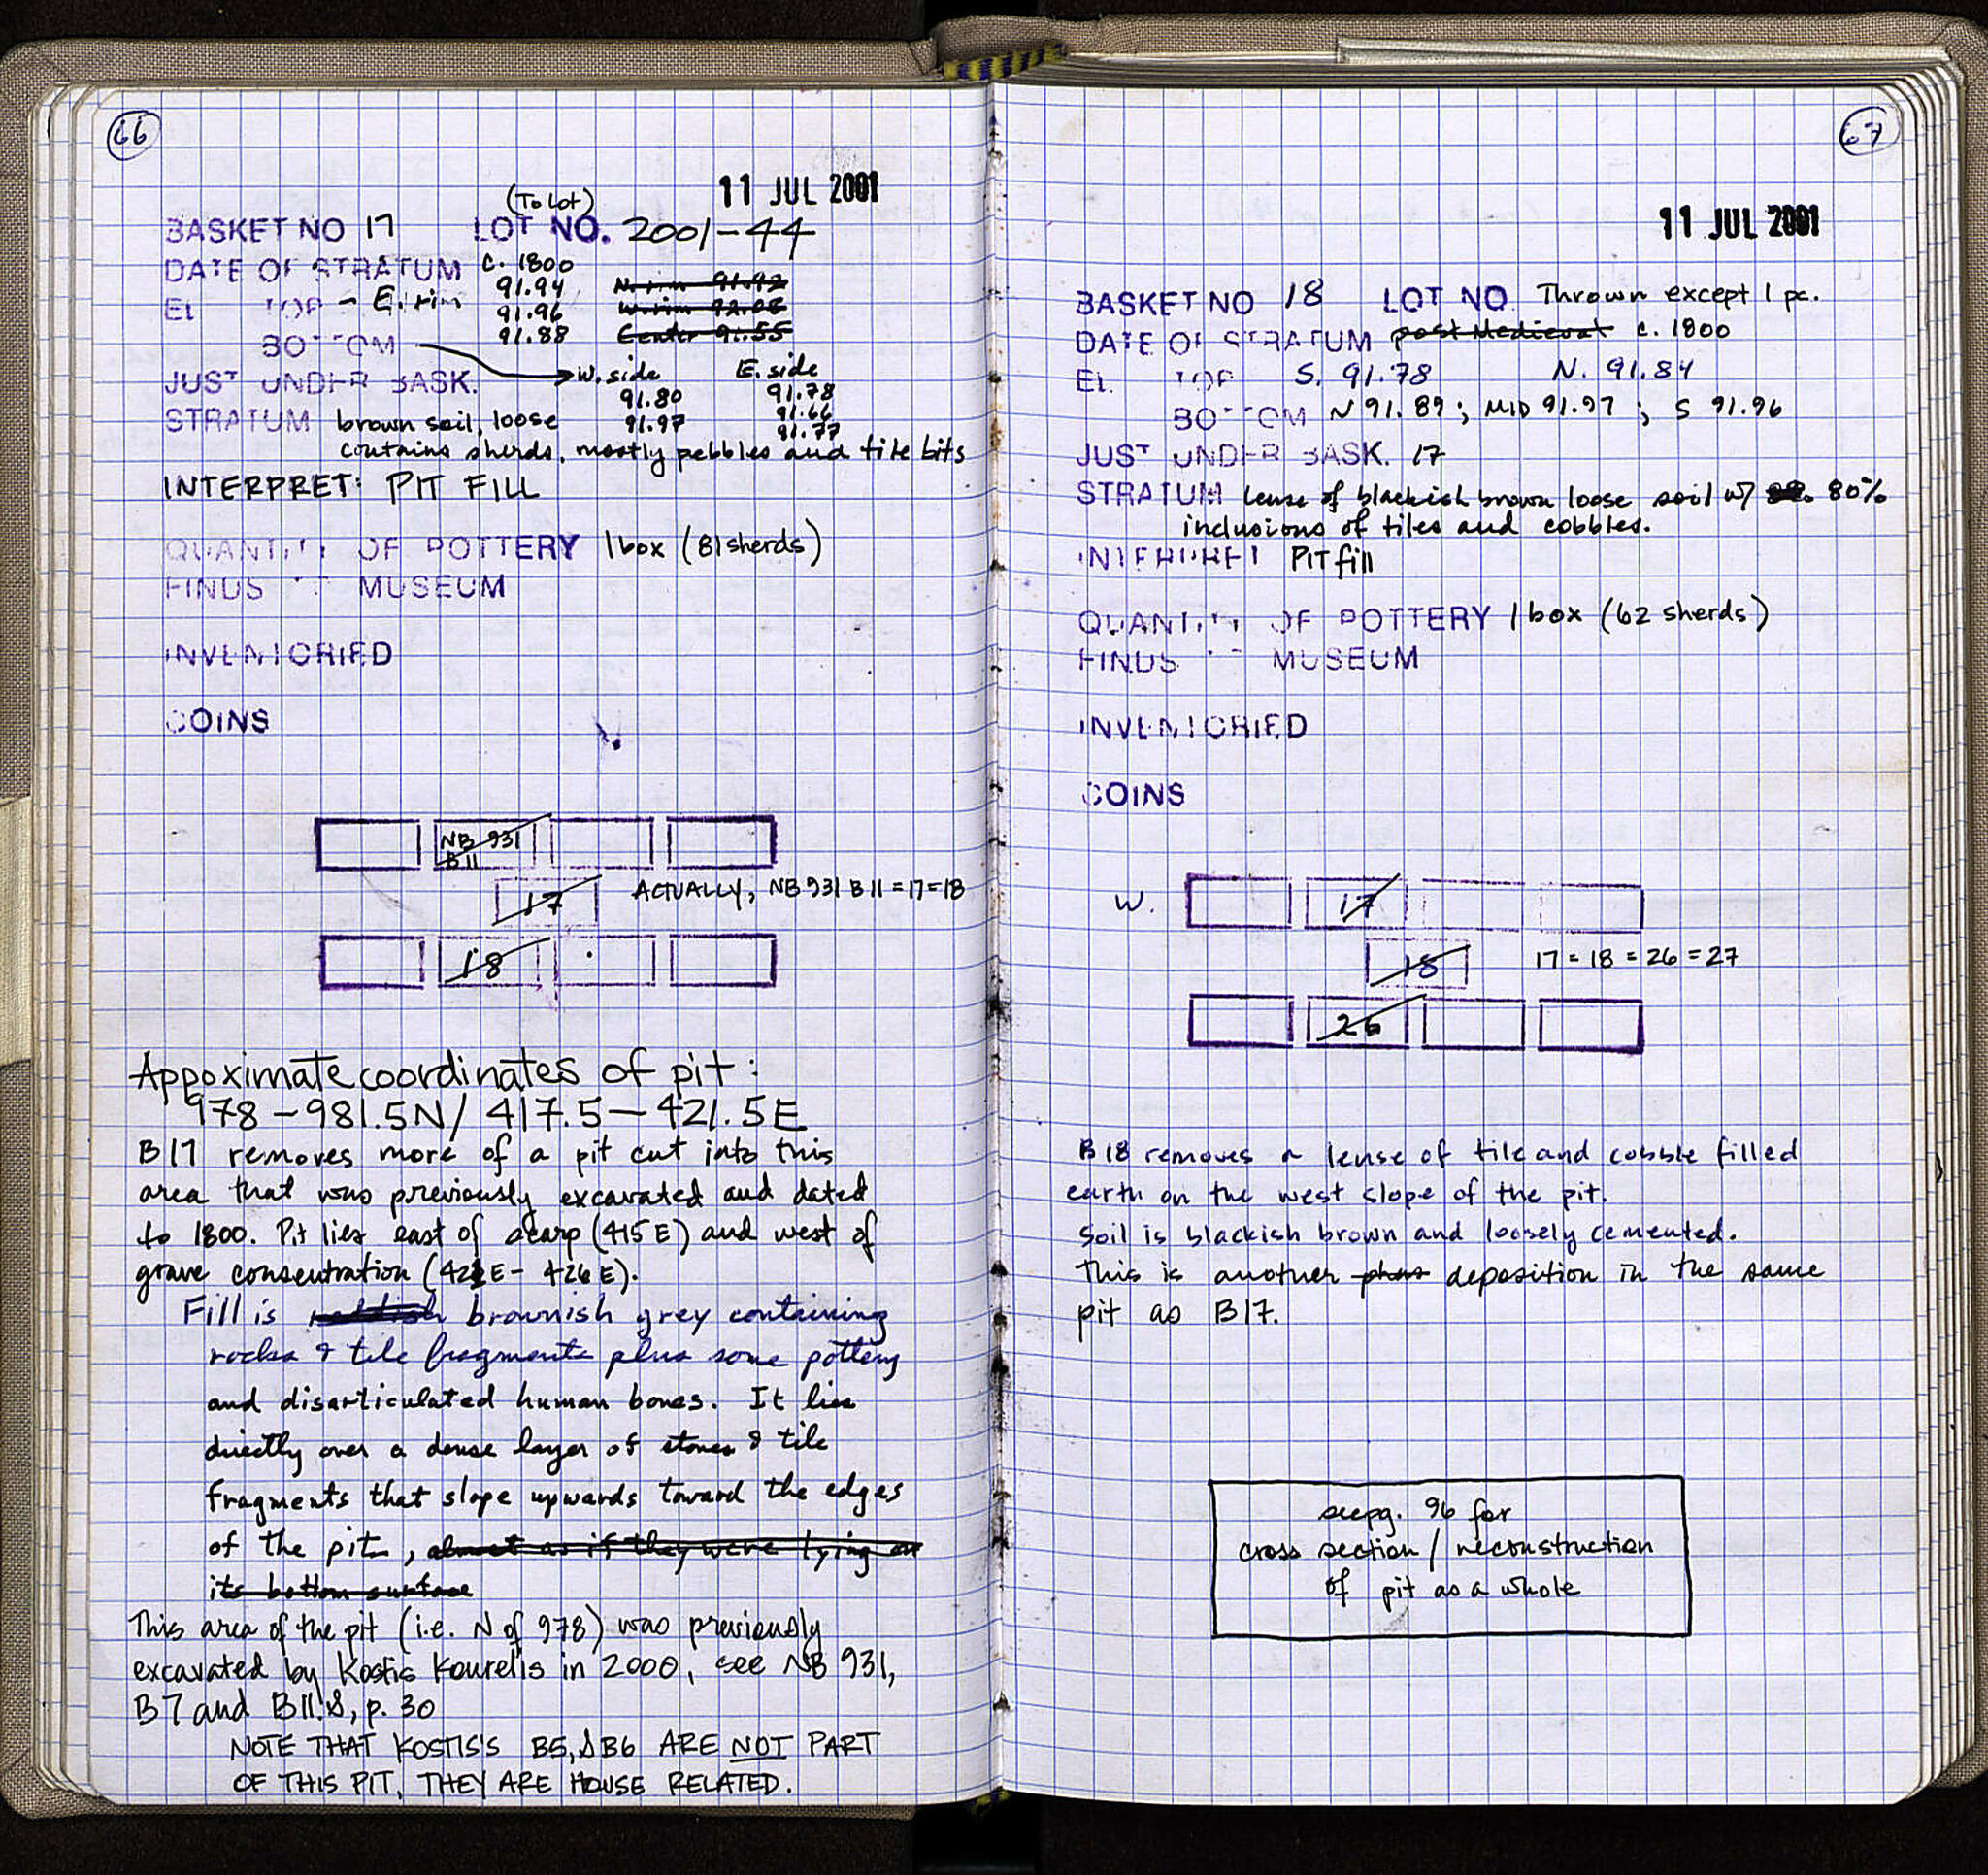 66
11 JUL 2001
(To Lot)
BASKET NO 17 LOT NO. 2001-44
DATE OF STRATUM c. 1800
91.94 N. rim 91.92
EL TOP - E. rim 91.96 W. rim 92.08
91.88 Center 91.55
BOTTOM
W. side E. side
JUST UNDER BASK. 91.80 91.78
91.97 91.66
STRATUM brown soil, loose 91.77
contains sherds, mostly pebbles and tile bits
INTERPRET: PIT FILL
QUANTITY OF POTTERY 1 box (81 sherds)
FINDS MUSEUM
INVENTORIED
COINS
NB 931
B11
17 ACTUALLY, NB 931 B11 = 17 = 18
18
Appoximate coordinates of pit:
978-981.5N/ 417.5-421.5E
B17 removes more of a pit cut into this
area that was previously excavated and dated
to 1800. Pit lies east of scarp (415 E) and west of
grave consentration (422E - 426 E).
Fill is reddish brownish grey containing
rocks & tile fragments plus some pottery
and disarticulated human bones. It lies
directly over a dense layer of stones & tile
fragments that slope upwards toward the edges
of the pit, almost as if they were lying on
its bottom surface
This area of the pit (i.e. N of 978) was previously
excavated by Kostis Kourelis in 2000, see NB 931,
B7 and B11, p. 30
NOTE THAT KOSTIS'S B5, & B6 ARE NOT PART
OF THIS PIT, THEY ARE HOUSE RELATED.
67
11 JUL 2001
BASKET NO 18 LOT NO. Thrown except 1 pc.
DATE OF STRATUM post Medieval c. 1800
EL TOP S. 91.78 N. 91.84
BOTTOM N 91.89; MID 91.97; S 91.96
JUST UNDER BASK. 17
STRATUM lense of blackish brown loose soil w/ 80%
inclusions of tiles and cobbles.
INTERPRET PIT fill
QUANTITY OF POTTERY 1 box (62 sherds)
FINDS MUSEUM
INVENTORIED
COINS
W. 17
18 17 = 18 = 26 = 27
26
B 18 removes a lense of tile and cobble filled
earth on the west slope of the pit.
Soil is blackish brown and loosely cemented.
This is another phase deposition in the same
pit as B17.
see pg. 96 for
cross section / reconstruction
of pit as a whole